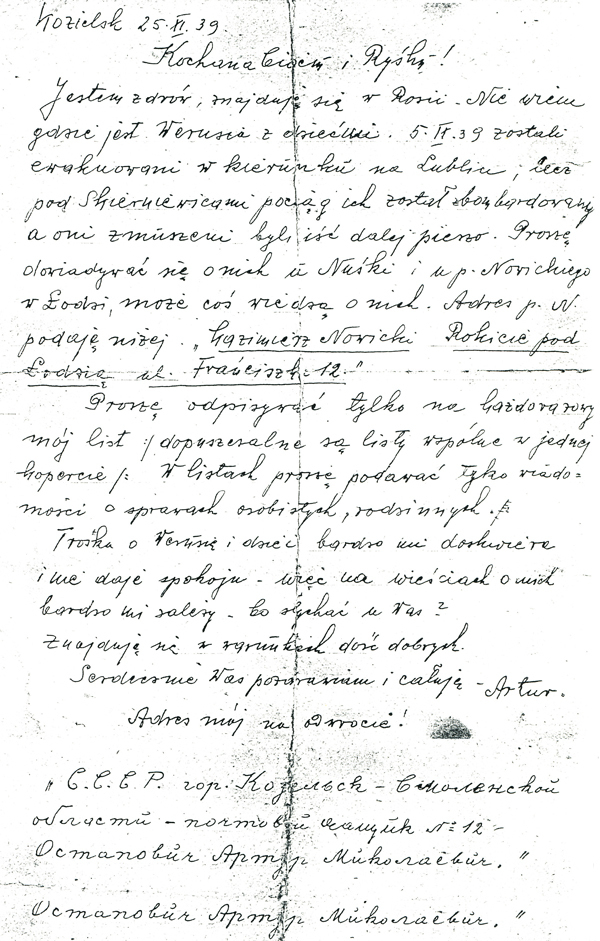 Kozielsk 25.XI.39.
Kochana Ciociu i Ryśku!
Jestem zdrów, znajduję się w Rosii. Nie wiem
gdzie jest Werusia z dziećmi. 5.IX.39 zostali
ewakuowani w kierunku na Lublin, lecz
pod Skierniewicami pociąg ich został zbombardowany
a oni zmuszeni byli iść dalej pieszo. Proszę
dowiadywać się o nich u Nuśki i u p. Nowickiego
w Łodzi, może coś wiedzą o nich. Adres p. N.
podaję niżej. „Kazimierz Nowicki Rokicie pod
Łodzią ul. Franciszk. 12."
Proszę odpisywać tylko na każdorazowy
mój list :/dopuszczalne są listy wspólne w jednej
kopercie/: W listach proszę podawać tylko wiado=
mości o sprawach osobistych, rodzinnych.
Troska o Werusię i dzieci bardzo mi doskwiera
i nie daje spokoju - więc na wieściach o nich
bardzo mi zależy - Co słychać u Was?
Znajduję się w warunkach dość dobrych.
Serdecznie Was pozdrawiam i całuję - Artur.
Adres mój na odwrocie!
„С.С.С.Р. гор. Козельск - Смоленской
области - почтовый ящик № 12 -
Останович Артур Миколаевич."
Останович Артур Миколаевич."